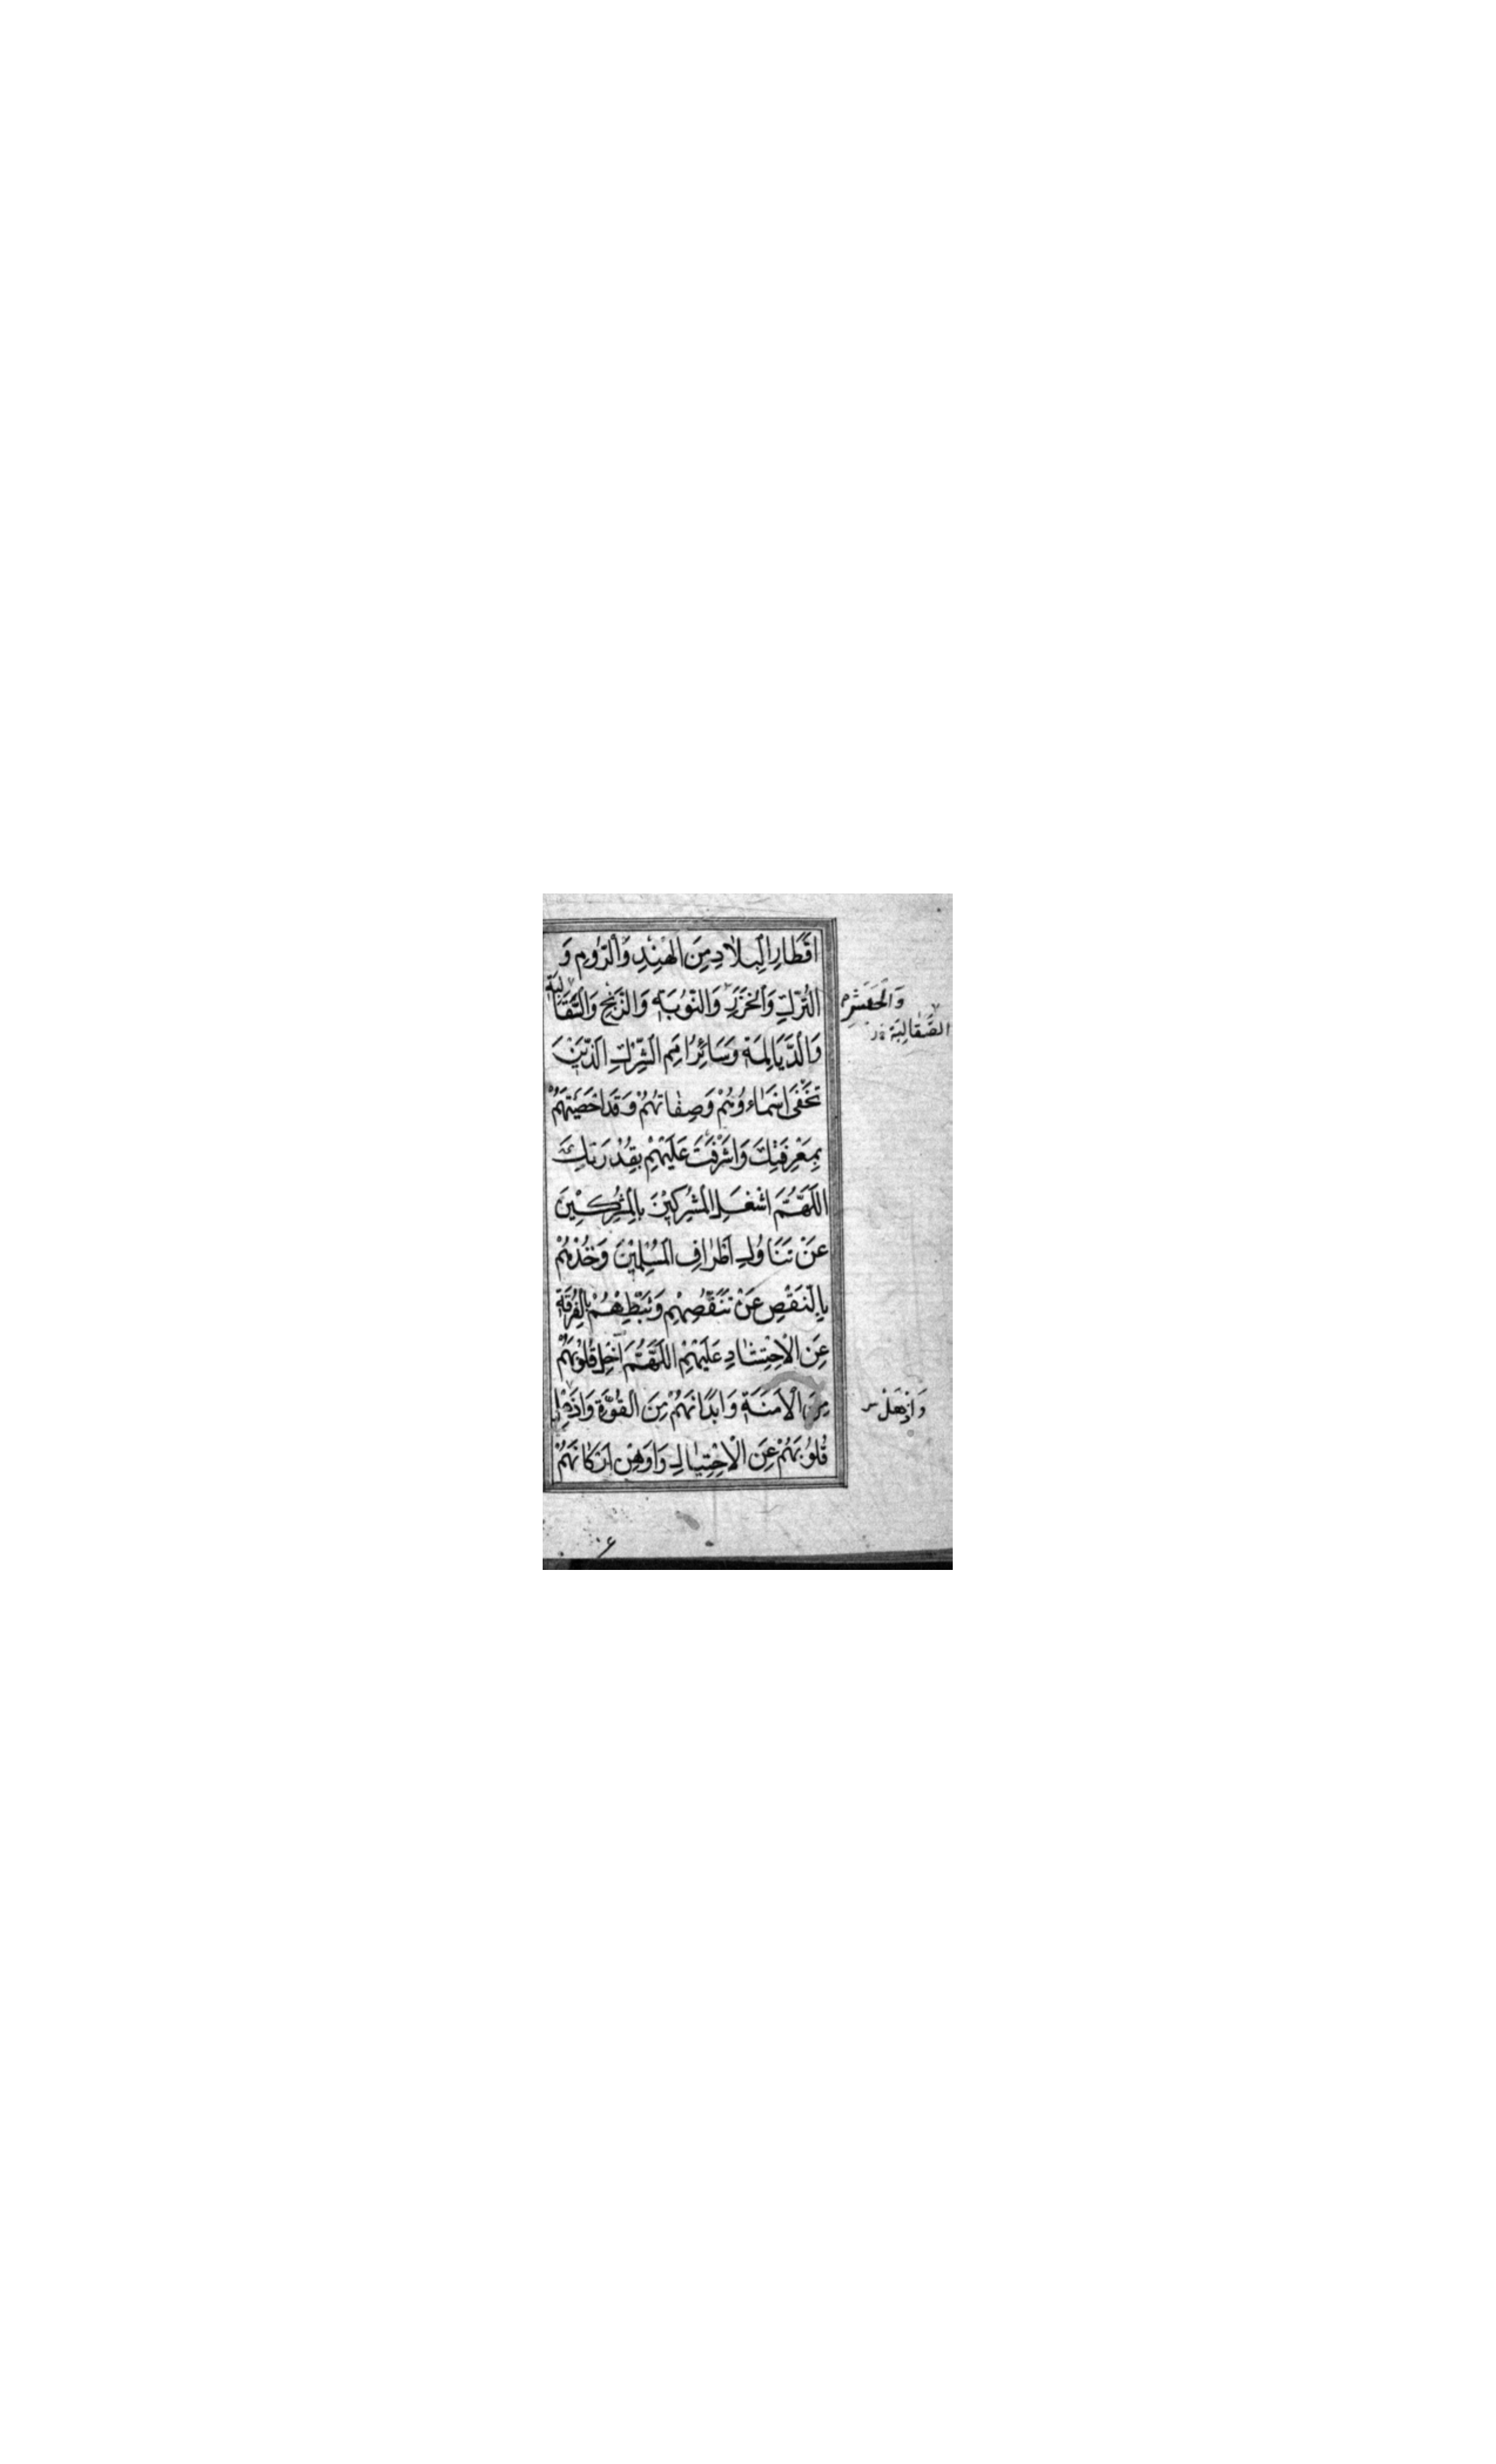 اَقْطَارِ الْبِلَادِ مِنَ الْهِنْدِ وَالرُّومِ وَ
التُّرْكِ وَالْخَزَرِ وَالنُّوبَةِ وَالزَّنْجِ وَالسَّقَالِبَةِ
وَالدَّيَالِمَةِ وَسَائِرِ اُمَمِ الشِّرْكِ الَّذِينَ
تَخْفَى اَسْمَاءُهُمْ وَصِفَاتُهُمْ وَقَدْ اَحْصَيْتَهُمْ
بِمَعْرِفَتِكَ وَاَشْرَفْتَ عَلَيْهِمْ بِقُدْرَتِكَ
اَللّٰهُمَّ اشْغَلِ الْمُشْرِكِينَ بِالْمُشْرِكِينَ
عَنْ تَنَاوُلِ اَطْرَافِ الْمُسْلِمِينَ وَخُذْهُمْ
بِالنَّقْصِ عَنْ تَنَقُّصِهِمْ وَثَبِّطْهُمْ بِالْفُرْقَةِ
عَنِ الْاِحْتِشَادِ عَلَيْهِمْ اَللّٰهُمَّ اَخْلِ قُلُوبَهُمْ
مِنَ الْاَمَنَةِ وَاَبْدَانَهُمْ مِنَ الْقُوَّةِ وَاَذْهِلْ
قُلُوبَهُمْ عَنِ الْاِحْتِيَالِ وَاَوْهِنْ اَرْكَانَهُمْ
وَالْحَبَشِ
الصَّقَالِبَةِ
وَاَذْهَلْ